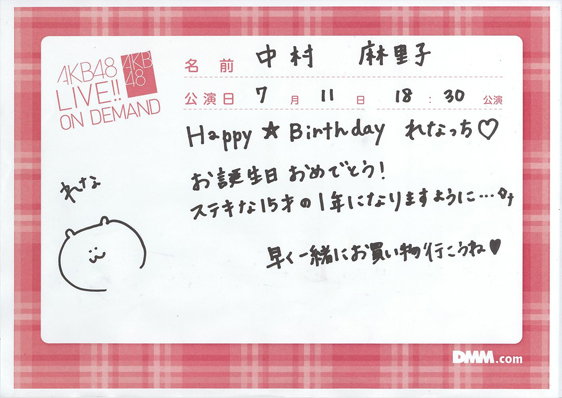 AKB48
LIVE!!
ON DEMAND
AKB
48
名前 中村 麻里子
公演日 7月 11日 18:30 公演
Happy ☆ Birthday れなっち♡
お誕生日おめでとう!
ステキな15才の1年になりますように…
早く一緒にお買い物行こうね♥
れな
DMM.com